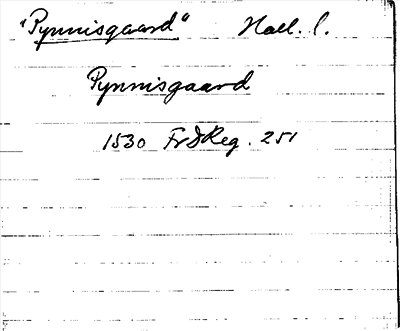 "Pynnisgaard" Hall. l.
Pynnisgaard
1530 FrdReg. 251